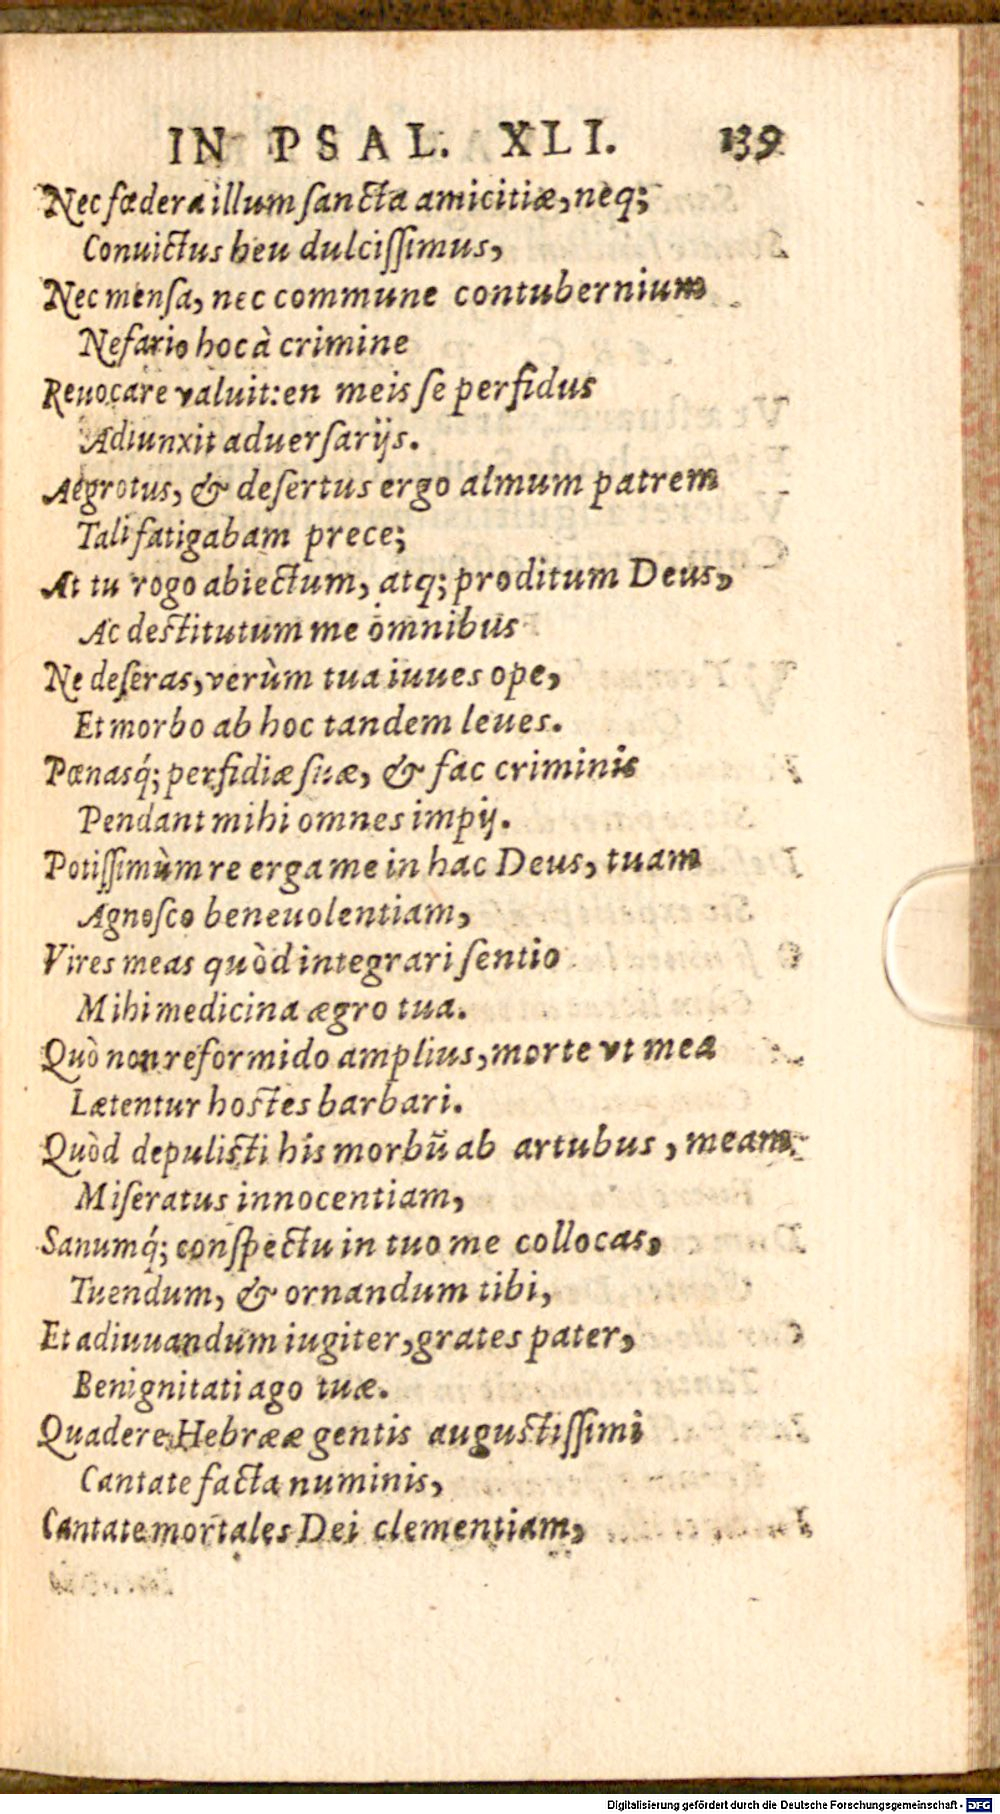 IN PSAL. XLI. 139
Nec fœdera illum ſancta amicitiæ, neq;
Conuictus heu dulciſſimus,
Nec menſa, nec commune contubernium
Nefario hoc à crimine
Reuocare valuit: en meis ſe perfidus
Adiunxit aduerſarijs.
Aegrotus, & deſertus ergo almum patrem
Tali fatigabam prece;
At tu rogo abiectum, atq; proditum Deus,
Ac deſtitutum me omnibus
Ne deſeras, verùm tua iuues ope,
Et morbo ab hoc tandem leues.
Pœnasq́; perfidiæ ſuæ, & fac criminis
Pendant mihi omnes impij.
Potiſſimùm re erga me in hac Deus, tuam
Agnoſco beneuolentiam,
Vires meas quòd integrari ſentio
Mihi medicina ægro tua.
Quò non reformido amplius, morte vt mea
Lætentur hoſtes barbari.
Quòd depuliſti his morbũ ab artubus, meam
Miſeratus innocentiam,
Sanumq́; conſpectu in tuo me collocas,
Tuendum, & ornandum tibi,
Et adiuuandum iugiter, grates pater,
Benignitati ago tuæ.
Quadere Hebrææ gentis auguſtiſſimi
Cantate facta numinis,
Cantate mortales Dei clementiam,
Digitalisierung gefördert durch die Deutsche Forschungsgemeinschaft - DFG